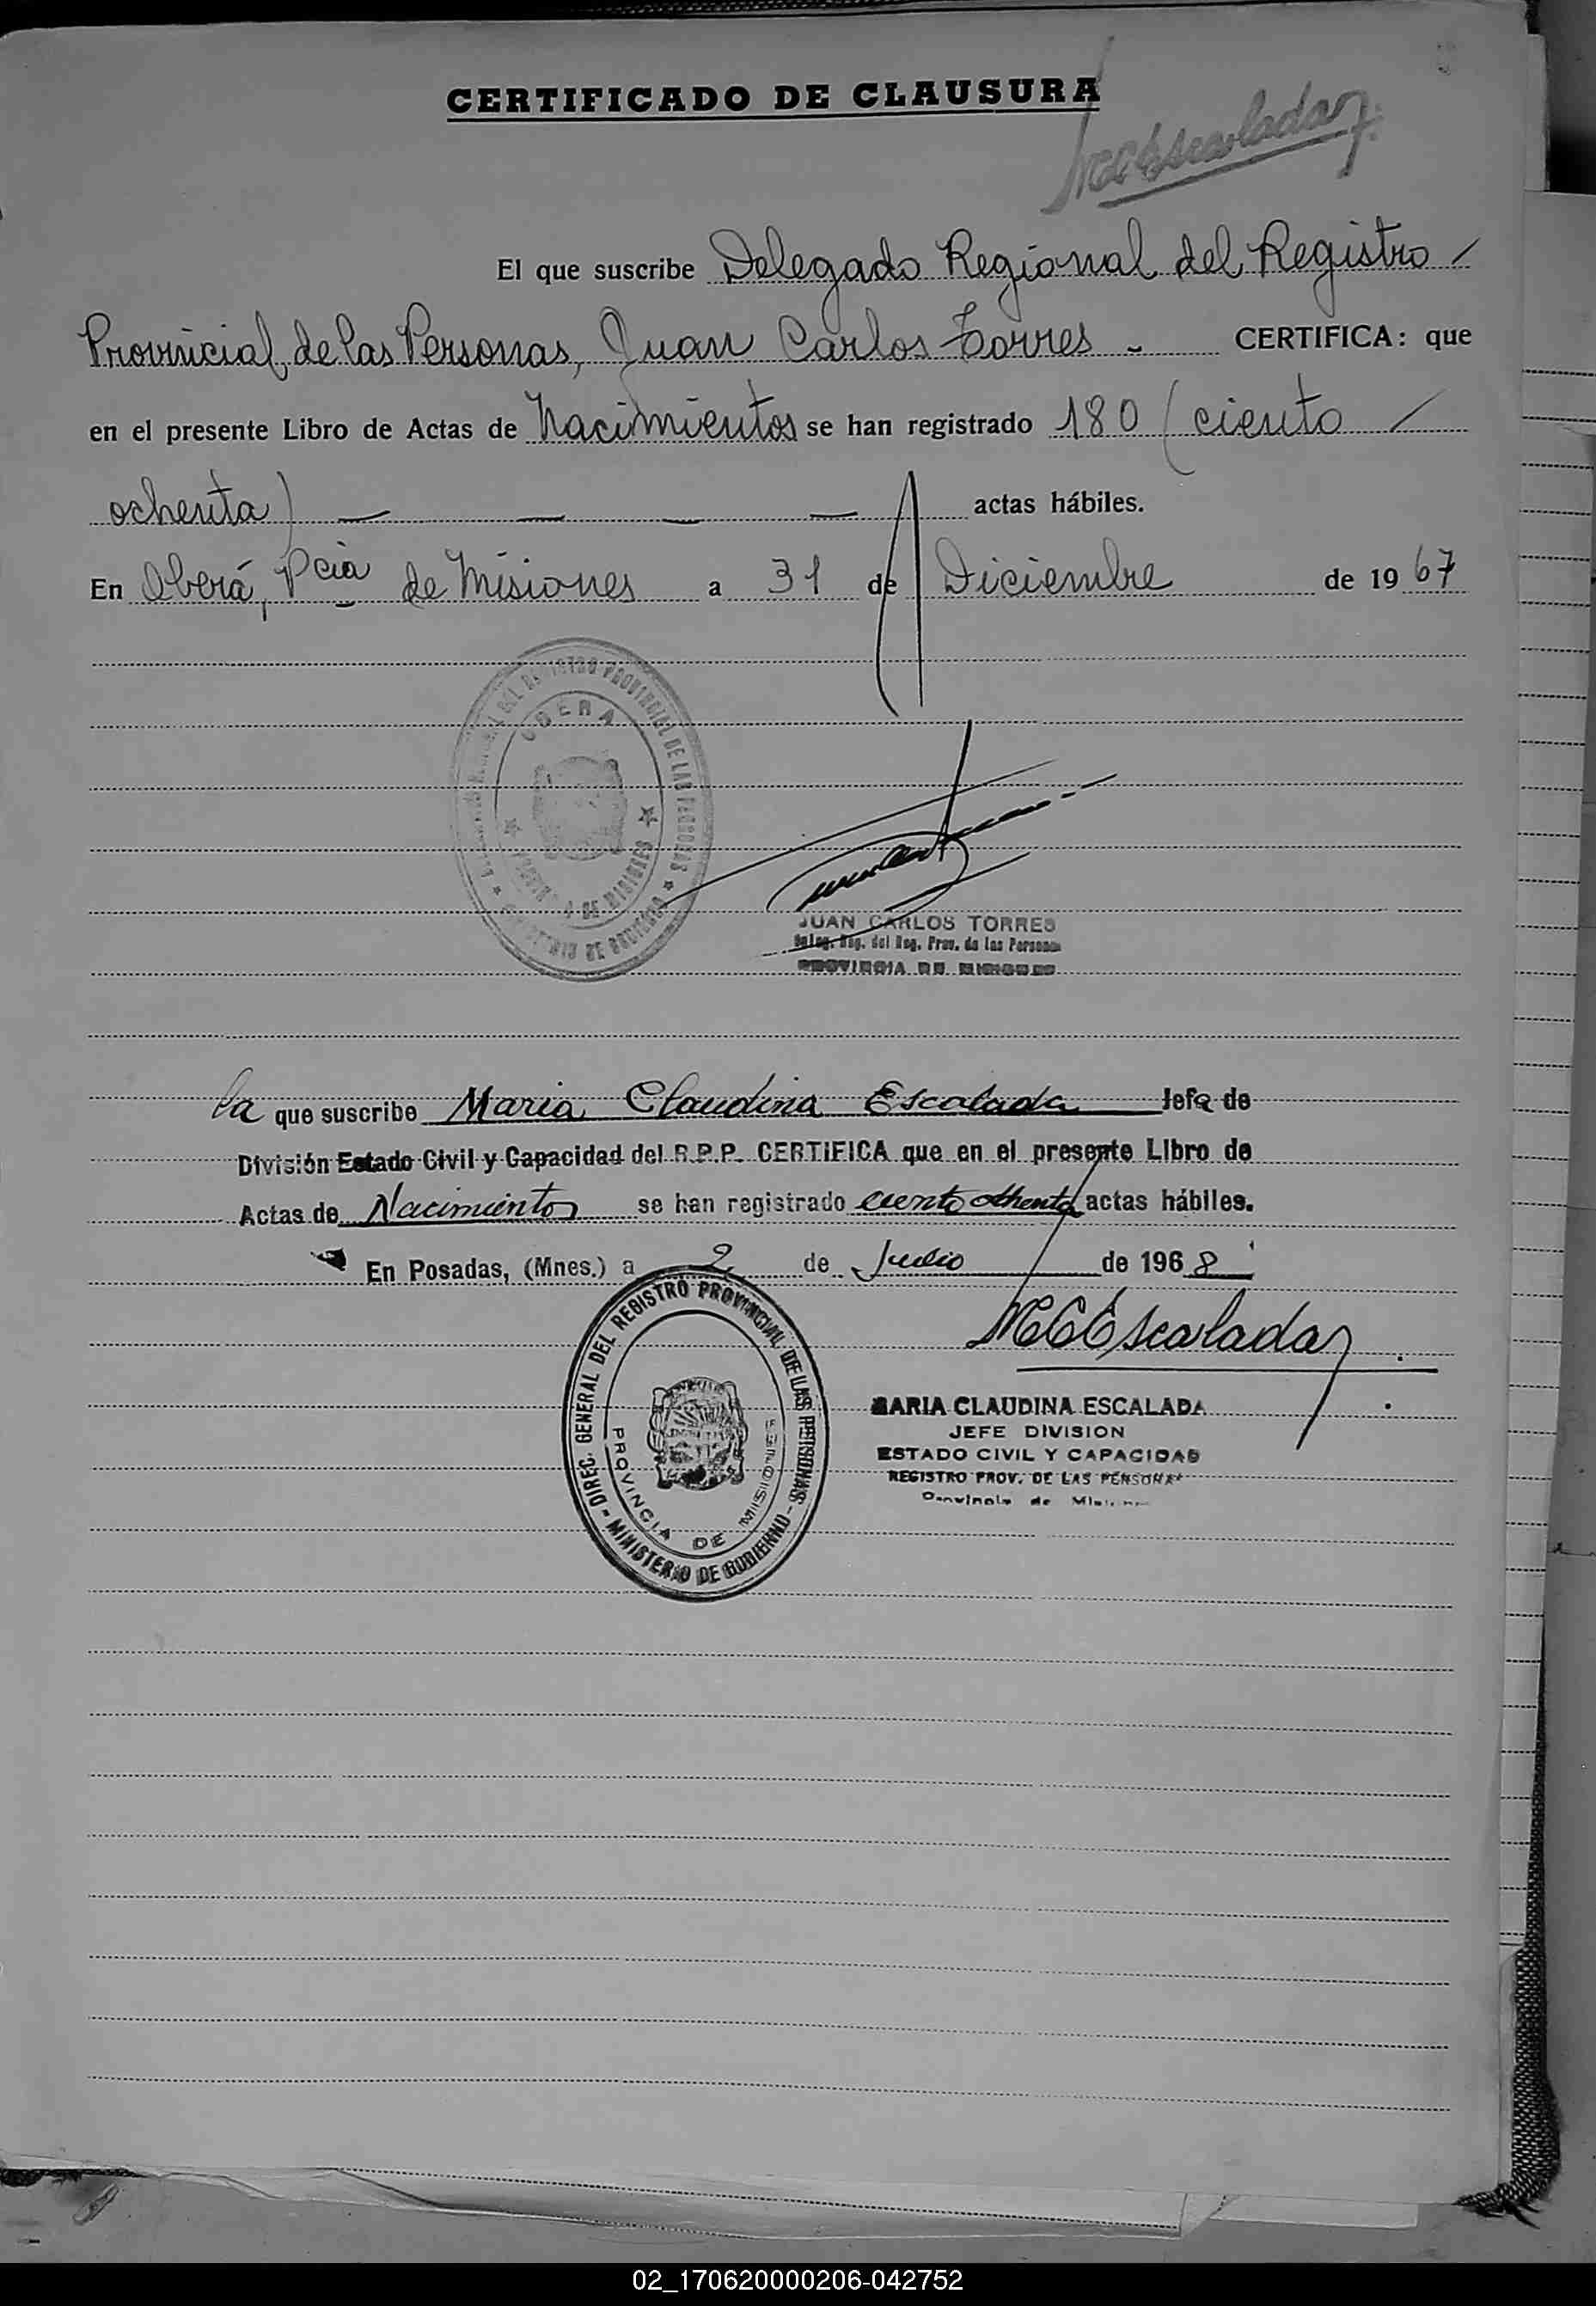 CERTIFICADO DE CLAUSURA
MCEscalada
El que suscribe Delegado Regional del Registro
Provincial de las Personas, Juan Carlos Torres - CERTIFICA: que
en el presente Libro de Actas de Nacimientos se han registrado 180 (ciento
ochenta) — — — — actas hábiles.
En Oberá, Pcia de Misiones a 31 de Diciembre de 1967
DEL REGISTRO PROVINCIAL DE LAS PERSONAS
OBERA
DE MISIONES
JUAN CARLOS TORRES
Deleg. Reg. del Reg. Prov. de las Personas
PROVINCIA DE MISIONES
La que suscribe Maria Claudina Escalada Jefa de
División Estado Civil y Capacidad del R.P.P. CERTIFICA que en el presente Libro de
Actas de Nacimientos se han registrado ciento ochenta actas hábiles.
En Posadas, (Mnes.) a 2 de Julio de 1968
MCEscalada
DIREC. GENERAL DEL REGISTRO PROVINCIAL DE LAS PERSONAS - MINISTERIO DE GOBIERNO -
PROVINCIA DE MISIONES
MARIA CLAUDINA ESCALADA
JEFE DIVISION
ESTADO CIVIL Y CAPACIDAD
REGISTRO PROV. DE LAS PERSONAS
Provincia de Misiones
02_170620000206-042752